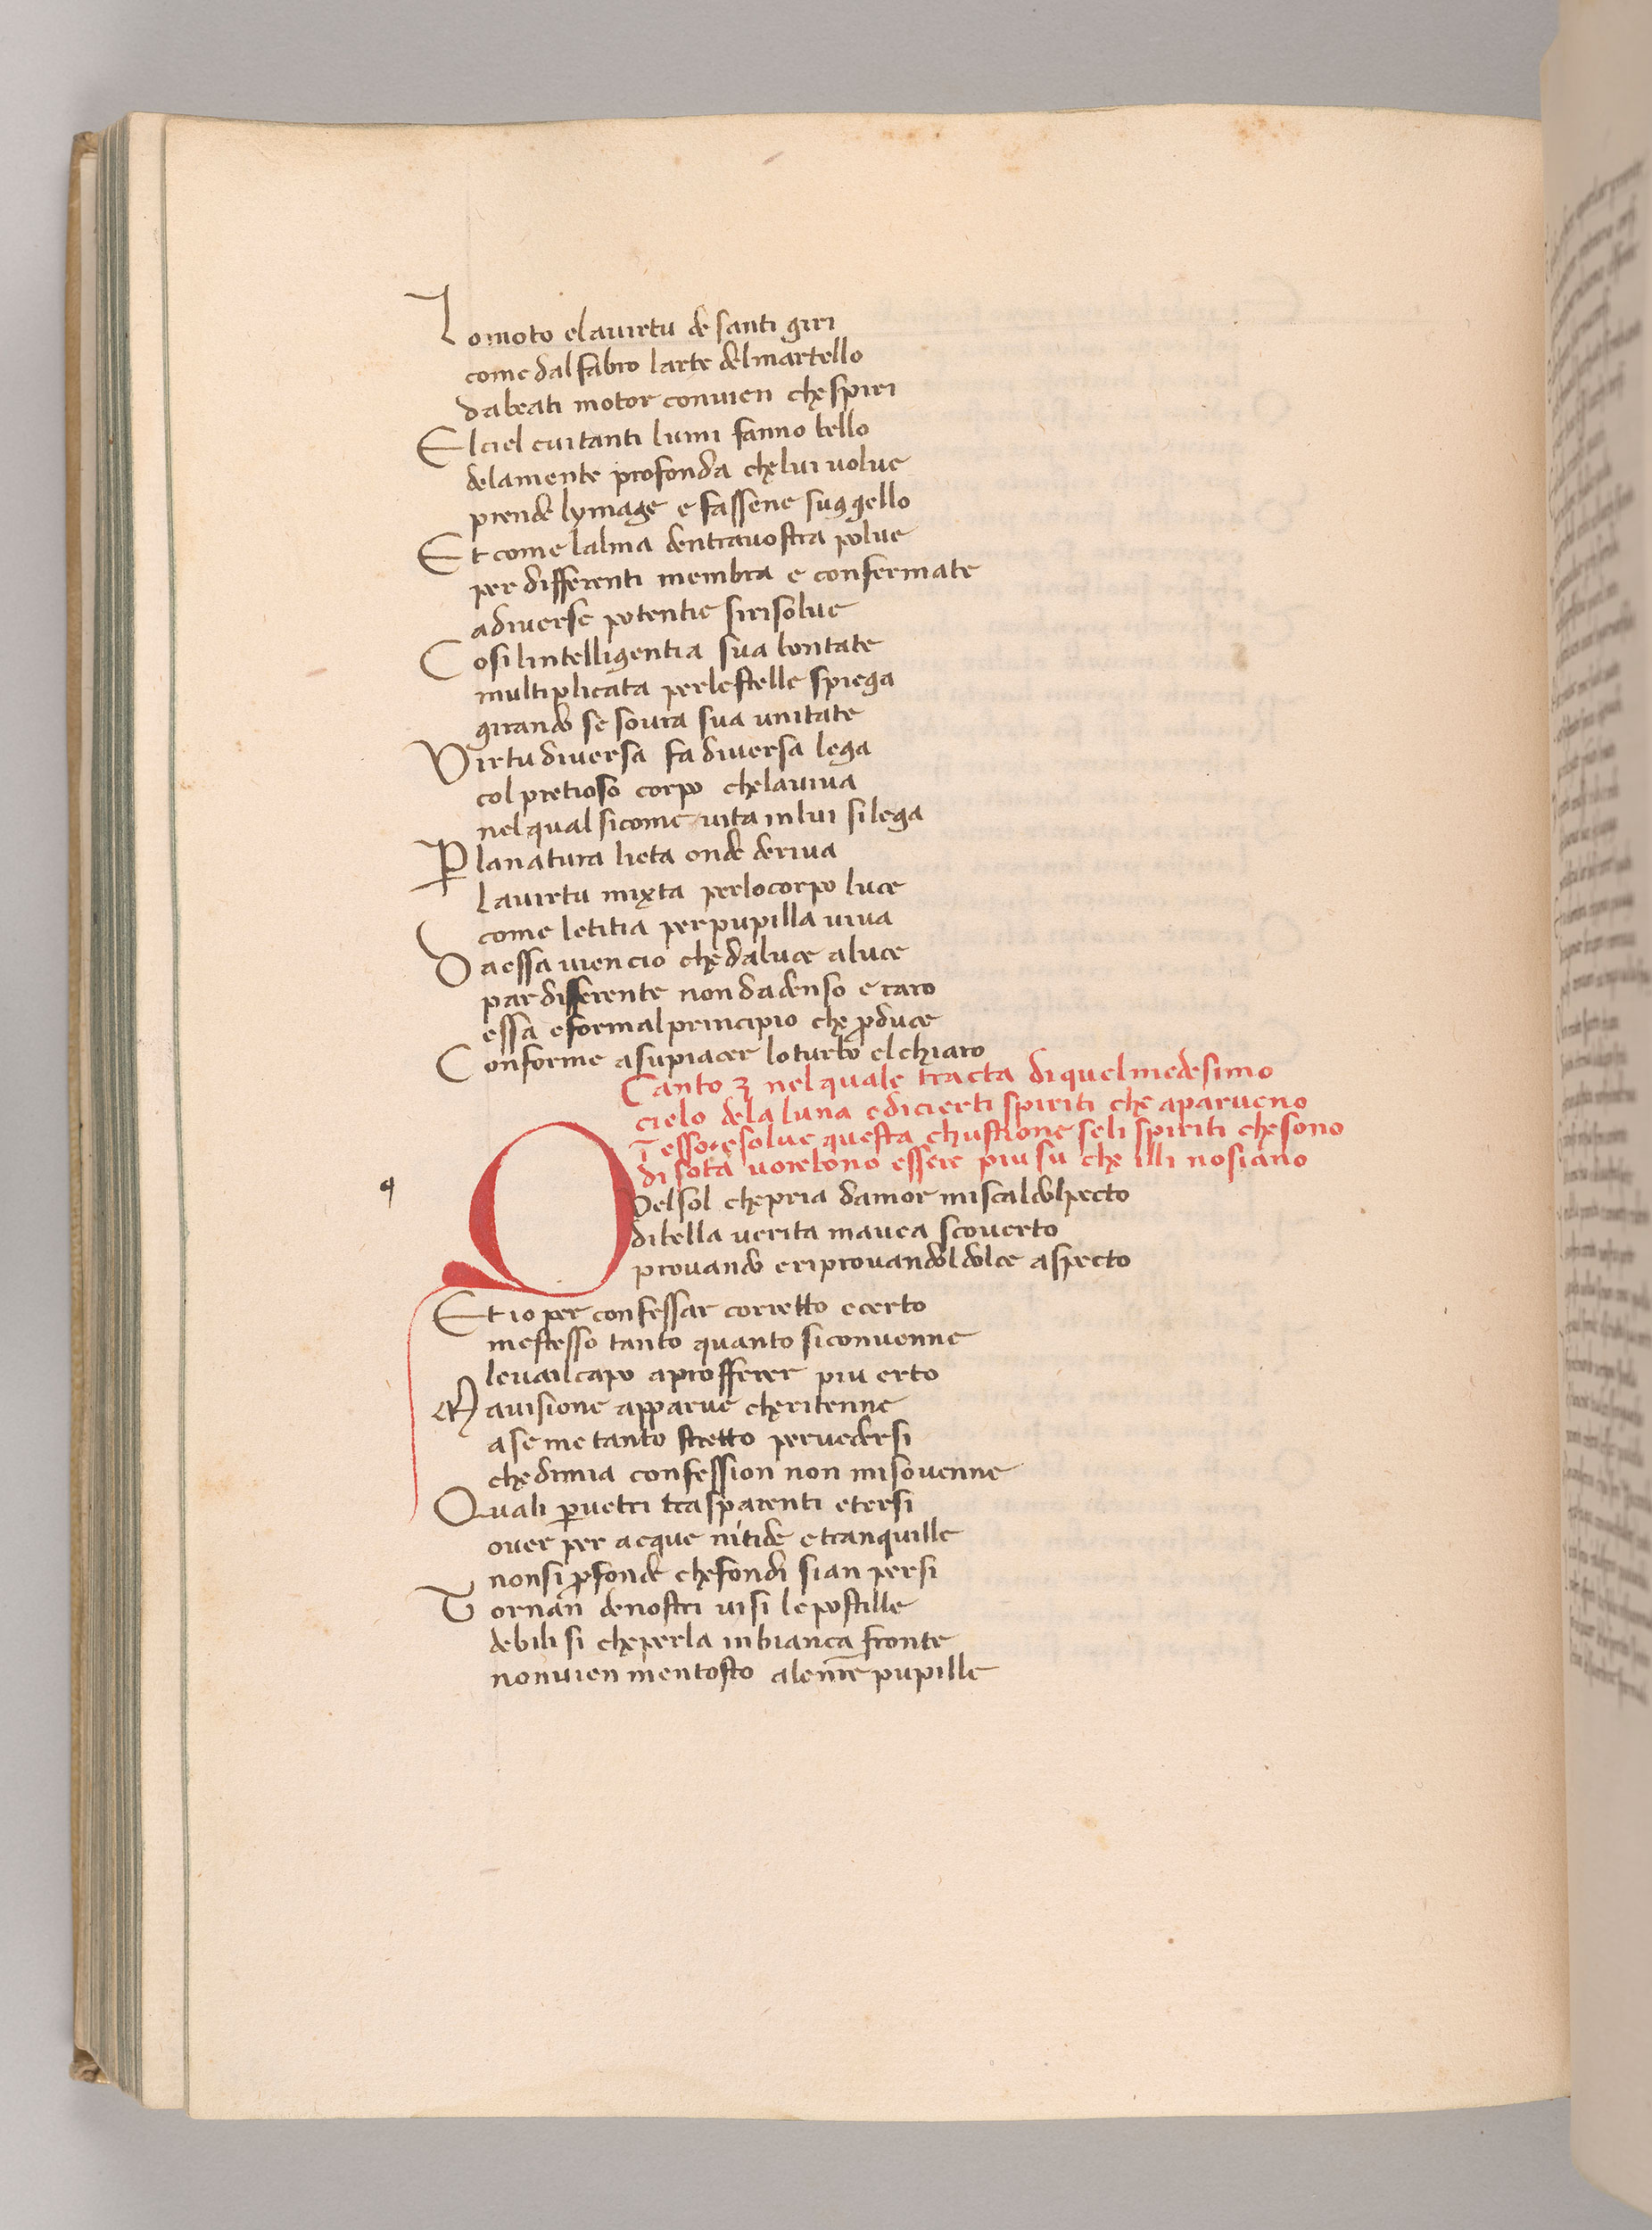 Lo moto elauirtu de santi giri
come dal fabro larte delmartello
dabeati motor conuien che spiri
El ciel cui tanti lumi fanno bello
delamente profonda che lui uolue
prende lymage e fassene suggello
Et come lalma dentrauostra polue
per differenti membra e confermate
adiuerse potentie si risolue
Cosi lintelligentia sua bontate
multiplicata perlestelle spiega
girando se soura sua unitate
Virtu diuersa fa diuersa lega
col pretioso corpo chelauiua
nelqual sicome uita inlui silega
P̱ lanatura lieta onde deriua
Lauirtu mixta perlocorpo luce
come letitia perpupilla uiua
Da essa uien cio che daluce aluce
par differente non dadenso e raro
essa eformal principio che ꝓduce
Conforme asupiacer loturbo elchiaro
Canto 3 nelquale tracta diquelmedesimo
cielo delaluna edicierti spiriti che aparueno
T esso resolue questa chustione seli spiriti chesono
di sota uorebono essere piu su che illi nosiano
QVelsol chepria damor miscaldolpecto
dibella uerita mauea scouerto
prouando eriprouandol dolce aspecto
Et io per confessar corretto ecerto
mestesso tanto quanto siconuenne
leuailcapo aprofferer piu erto
Mauisione apparue cheritenne
ase me tanto stretto peruedersi
chedimia confession non misouenne
Quali ꝑuetri trasparenti etersi
ouer per acque nitide etranquille
nonsi ꝓfonde chefondi sian persi
Tornan denostri uisi lepostille
debili si cheperla inbianca fronte
nonuien mentosto alenr̄e pupille